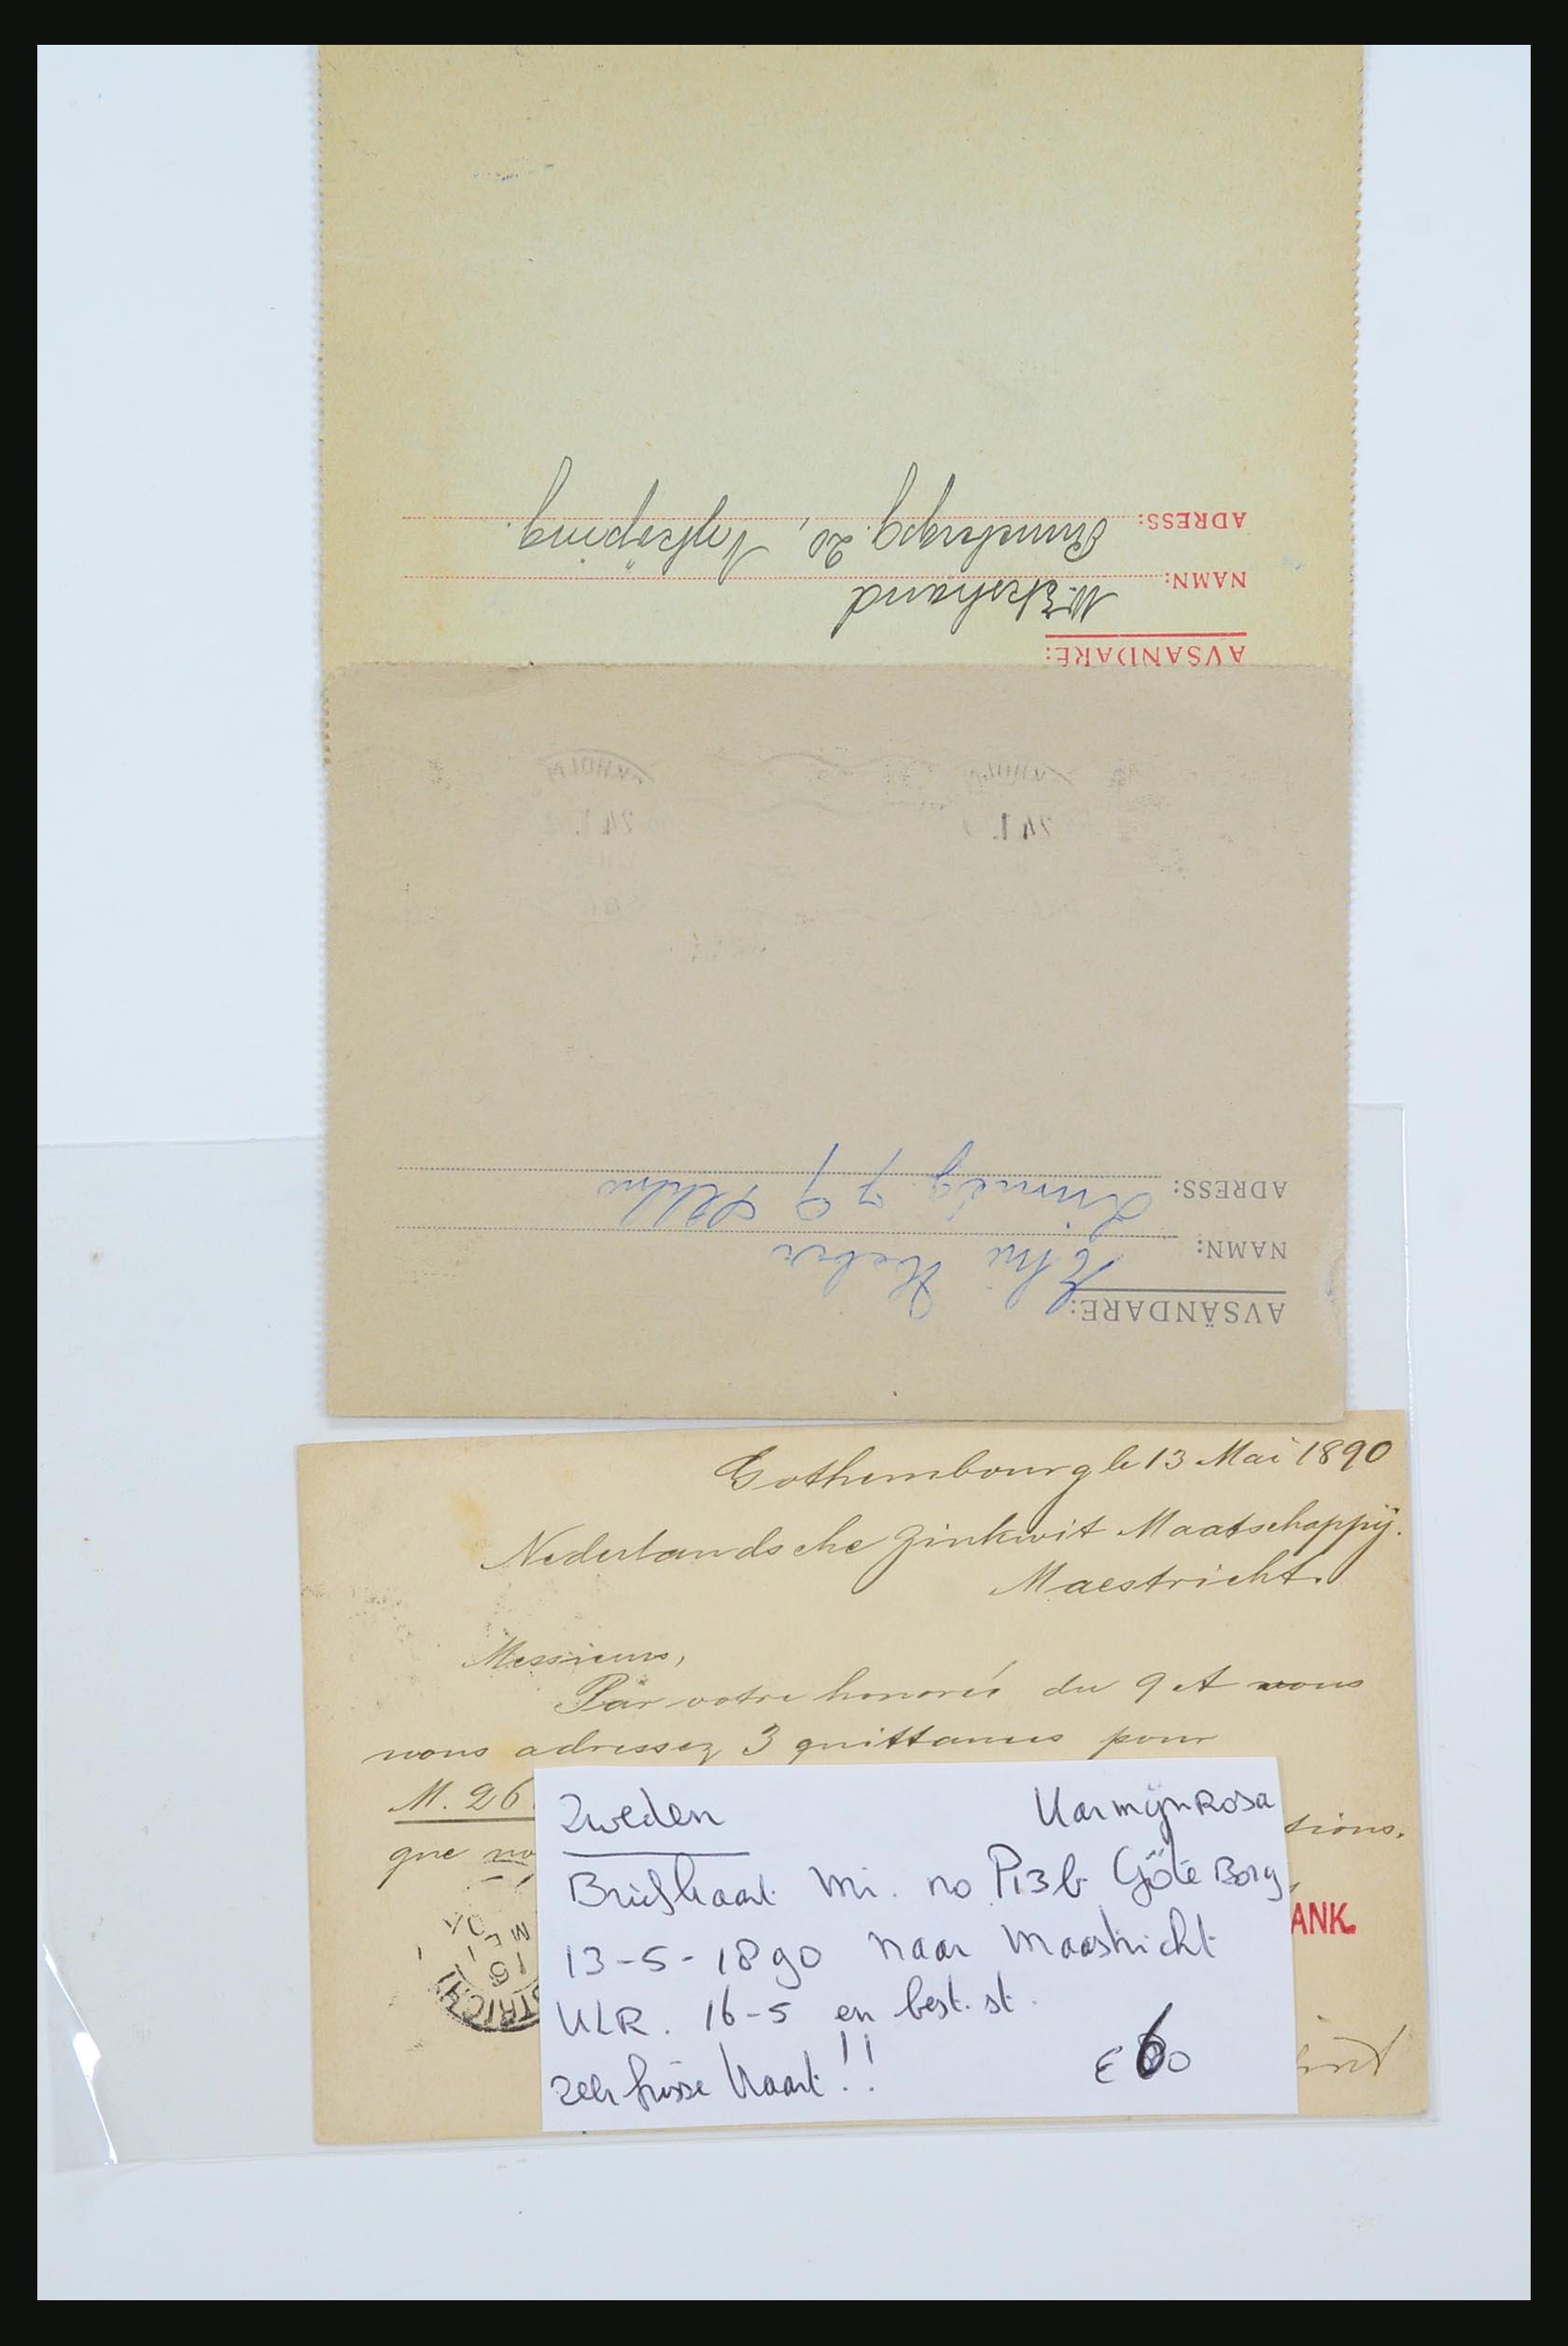 AVSÄNDARE:
NAMN: W. Ekstrand
ADRESS: 20, Nyköping.
AVSÄNDARE:
NAMN:
ADRESS: Linnég 79 Sthlm
Gothembourg le 13 Mai 1890
Nederlandsche Zinkwit Maatschappij.
Maestricht.
Messieurs,
Par votre honorée du 9 ct vous
nous adressez 3 quittances pour
M. 26
tions.
que
ANK.
Zweden Karmijnrosa
Briefkaart Mi. no P13b Göteborg
13-5-1890 naar Maastricht
KLR. 16-5 en best. st.
zeer frisse kaart!!
€ 60